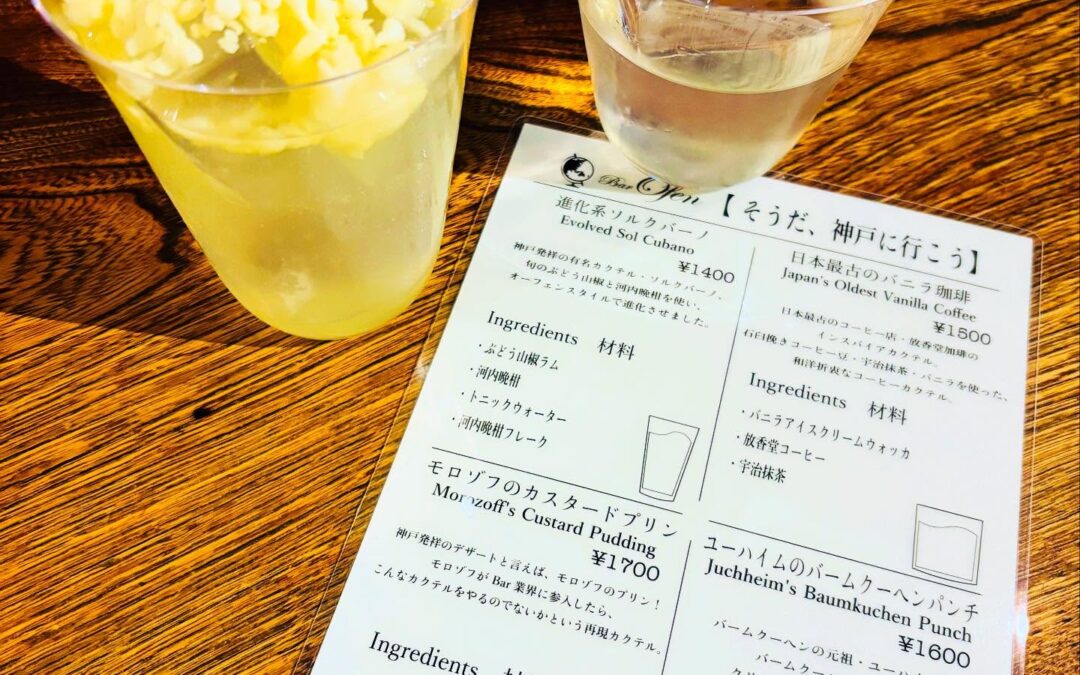 Bar Ofen
【そうだ、神戸に行こう】
進化系ソルクバーノ
Evolved Sol Cubano
¥1400
神戸発祥の有名カクテル・ソルクバーノ。
旬のぶどう山椒と河内晩柑を使い、
オーフェンスタイルで進化させました。
Ingredients 材料
・ぶどう山椒ラム
・河内晩柑
・トニックウォーター
・河内晩柑フレーク
日本最古のバニラ珈琲
Japan's Oldest Vanilla Coffee
¥1500
日本最古のコーヒー店・放香堂加琲の
インスパイアカクテル。
石臼挽きコーヒー豆・宇治抹茶・バニラを使った、
和洋折衷なコーヒーカクテル。
Ingredients 材料
・バニラアイスクリームウォッカ
・放香堂コーヒー
・宇治抹茶
モロゾフのカスタードプリン
Morozoff's Custard Pudding
¥1700
神戸発祥のデザートと言えば、モロゾフのプリン！
モロゾフが Bar 業界に参入したら、
こんなカクテルをやるのでないかという再現カクテル。
Ingredients
ユーハイムのバームクーヘンパンチ
Juchheim's Baumkuchen Punch
¥1600
バームクーヘンの元祖・ユーハ
バームク